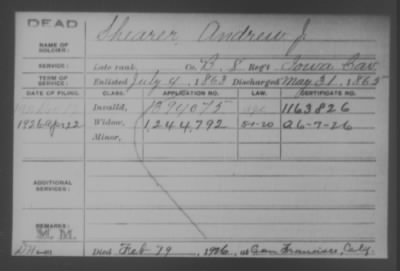 DEAD
NAME OF SOLDIER: Shearer, Andrew J.
SERVICE: Late rank, Co. B, 8 Reg't Iowa Cav.
TERM OF SERVICE: Enlisted July 4, 1863 Discharged May 31, 1865
DATE OF FILING. CLASS. APPLICATION NO. LAW. CERTIFICATE NO.
Invalid, 1394075 age 1163826
1926 Apr 22 Widow, 1,244,792 A6-7-26
Minor,
ADDITIONAL SERVICES:
REMARKS:
M. M.
Died Feb 19, 1926, at San Francisco, Calif.